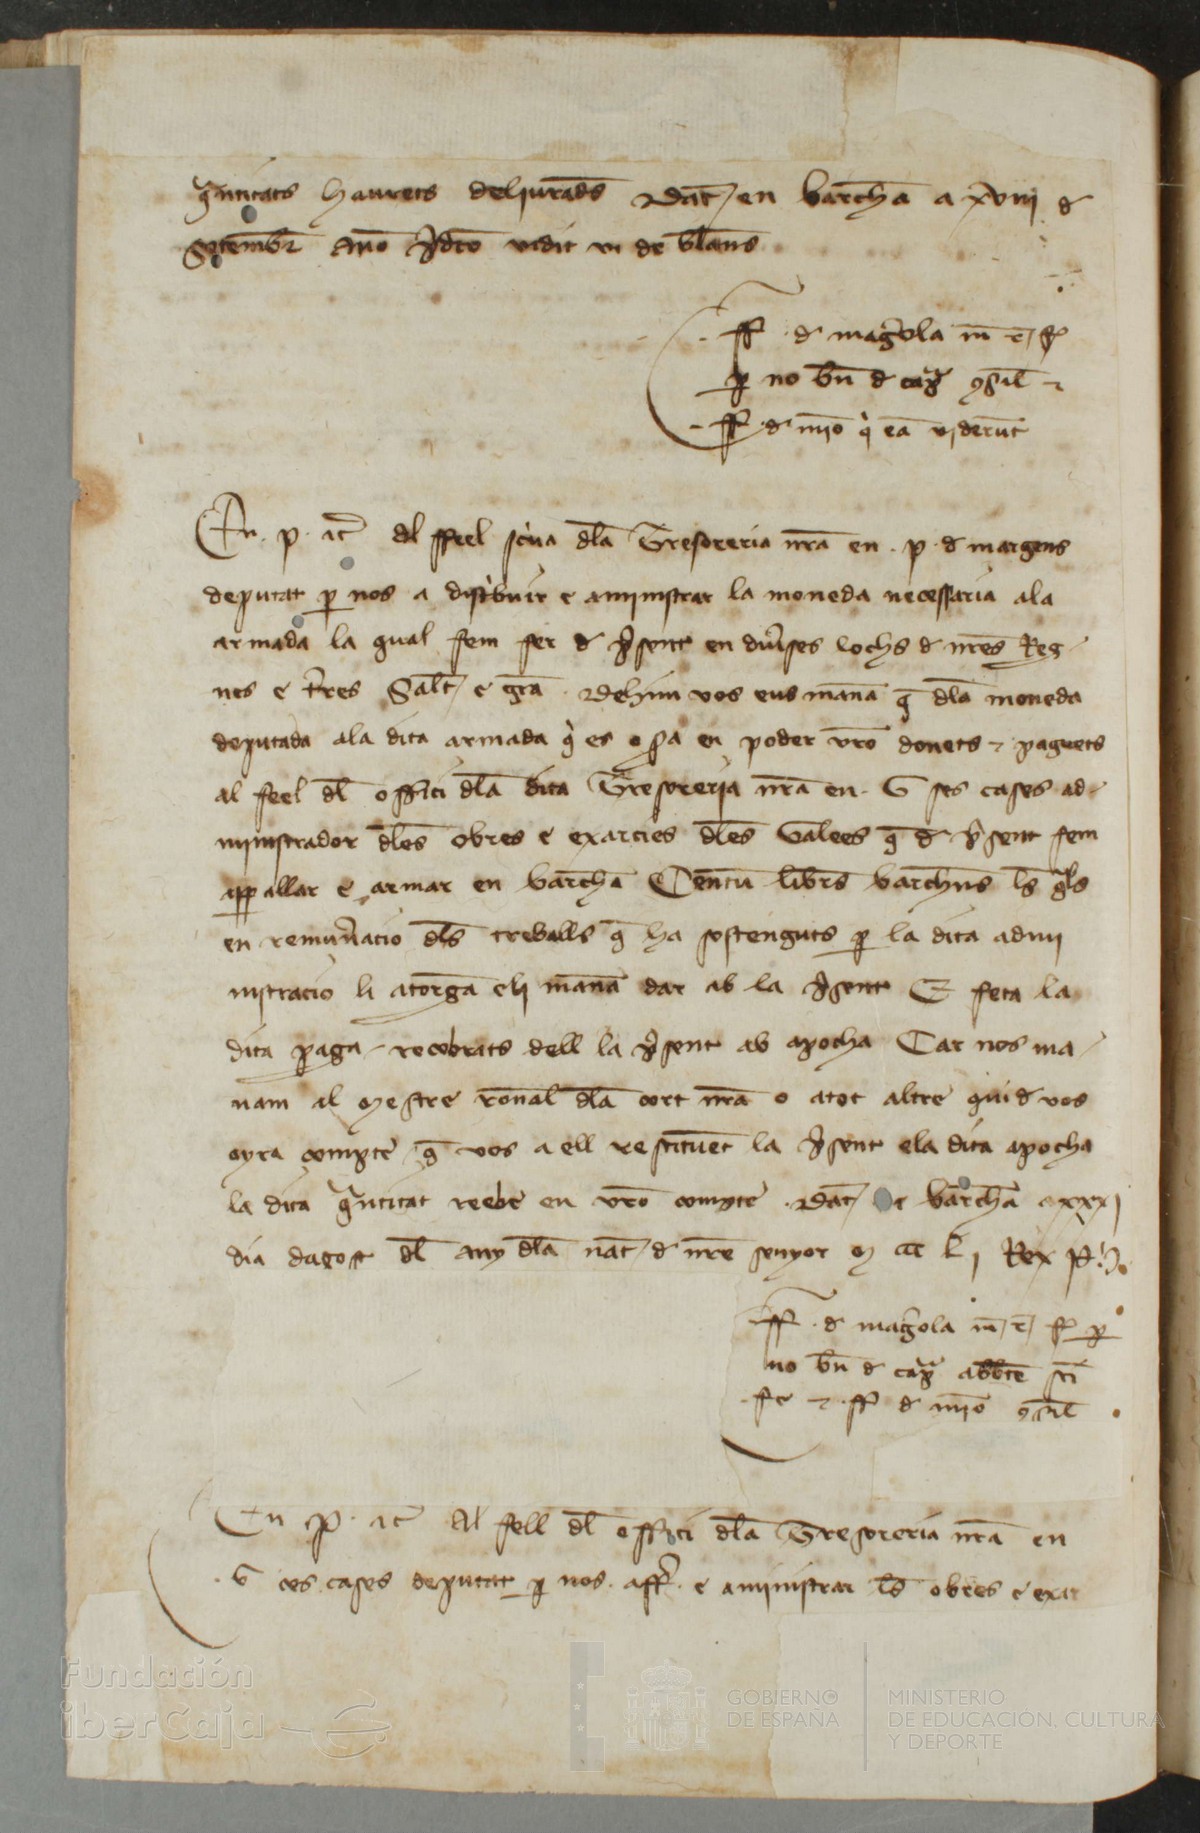 quantitats haurets deliurades Dat en Barchna a xviii de
Setembr Anno predco vidit vi de blans
ff. de magrola m r f
per no bn de capra consil e
ff. de miro qui ea viderunt
En p. etc Al ffeel scriva dla Tresoreria nra en . p. de margens
deputat per nos a distribuir e aministrar la moneda necessaria ala
armada la qual fem fer de present en diverses lochs de nres Reg
nes e terres Salt e gra. Dehim vos eus manam q dla moneda
deputada ala dita armada qui es o sera en poder vro donets e paguets
al feel dl offici dla dita Tresoreria nra en. G ses cases ad
ministrador dles obres e exarcies dles Galees q de present fem
apparellar e armar en Barchna Centum libres barchns les quals
en remuneracio dls treballs q ha sostenguts per la dita admi
nistracio li atorgam eli manam dar ab la present E feta la
dita paga recobrats dell la present ab apocha Car nos ma
nam al Mestre ronal dla cort nra o atot altre qui de vos
oyra compte q vos a ell restituent la present ela dita apocha
la dita quantitat reebe en vro compte . Dat en Barchna a xxxi
dia dagost dl any dla nat de nre senyor M ccc L i Rex P.
ff. de magrola m r f per
no bn de capra abbte sci
fe e ff de miro consil
En P. etc Al feell dl offici dla Tresoreria nra en
. G ces cases deputat per nos . affer. e aministrar les obres e exar
Fundación
iberCaja
GOBIERNO
DE ESPAÑA
MINISTERIO
DE EDUCACIÓN, CULTURA
Y DEPORTE